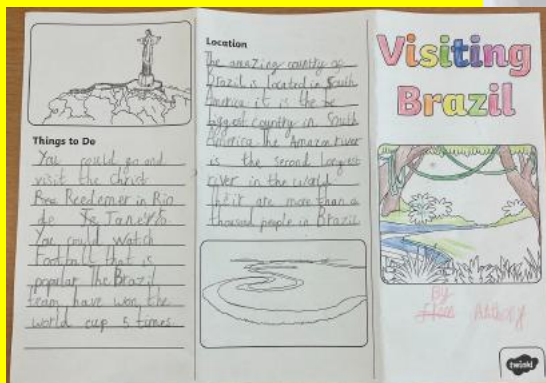 Things to Do
You could go and
visit the Christ
Rea Reedemer in Rio
de Ja Janeyro.
You could watch
Football that is
popular The Brazil
team have won the
world cup 5 times.
Location
The amazing country of
Brazil is located in South
America it is the be
biggest country in South
America. The Amazon river
is the second longest
river in the world.
their are more than a
thousand people in Brazil
Visiting
Brazil
By
Anthony
twinkl